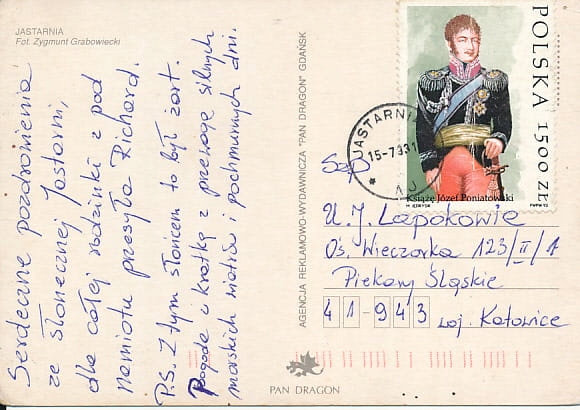 JASTARNIA
Fot. Zygmunt Grabowiecki
Serdeczne pozdrowienia
ze słonecznej Jastarni,
dla całej rodzinki z pod
namiotu przesyła Richard.
P.S. Z tym słońcem to był żart.
Pogoda w kratkę z przewagą silnych
morskich wiatrów i pochmurnych dni.
AGENCJA REKLAMOWO-WYDAWNICZA "PAN DRAGON" GDAŃSK
PAN DRAGON
POLSKA 1500 ZŁ
Książę Józef Poniatowski
JASTARNIA
15-7 93
Łapokowie
Oś. Wieczorka 123/II/1
Piekary Śląskie
41-943 woj. Katowice